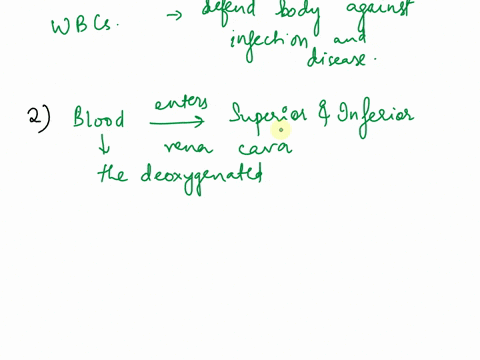 WBCs. → defend body against
infection and
disease.
2) Blood enters → Superior & Inferior
vena cava
↓
the deoxygenated